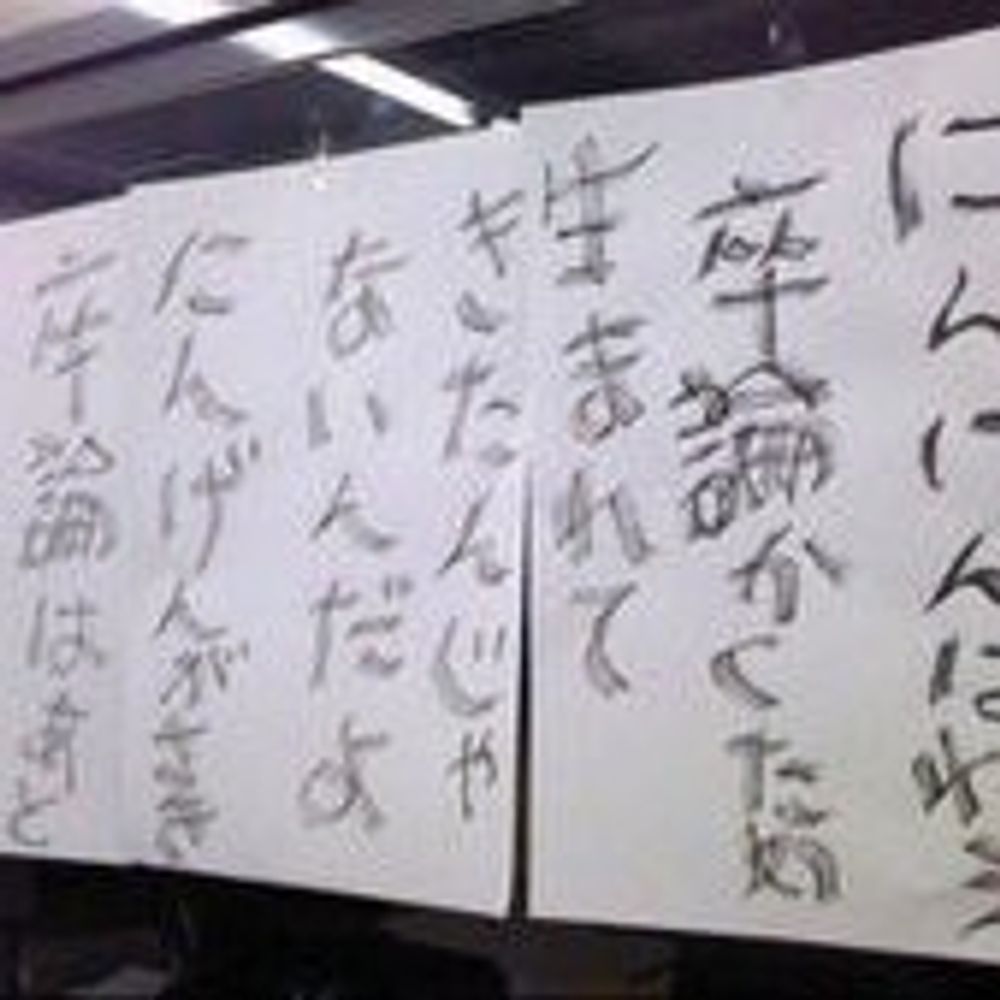 にんげんはね
卒論かくため
生まれて
きたんじゃ
ないんだよ
にんげんがさき
卒論はあと